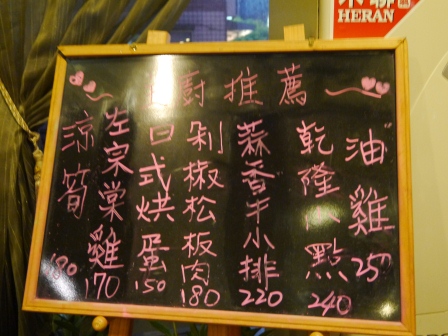 禾聯
HERAN
主廚推薦
油雞 250
乾隆小點 240
蒜香牛小排 220
剁椒松板肉 180
日式烘蛋 150
左宗棠雞 170
涼筍 180